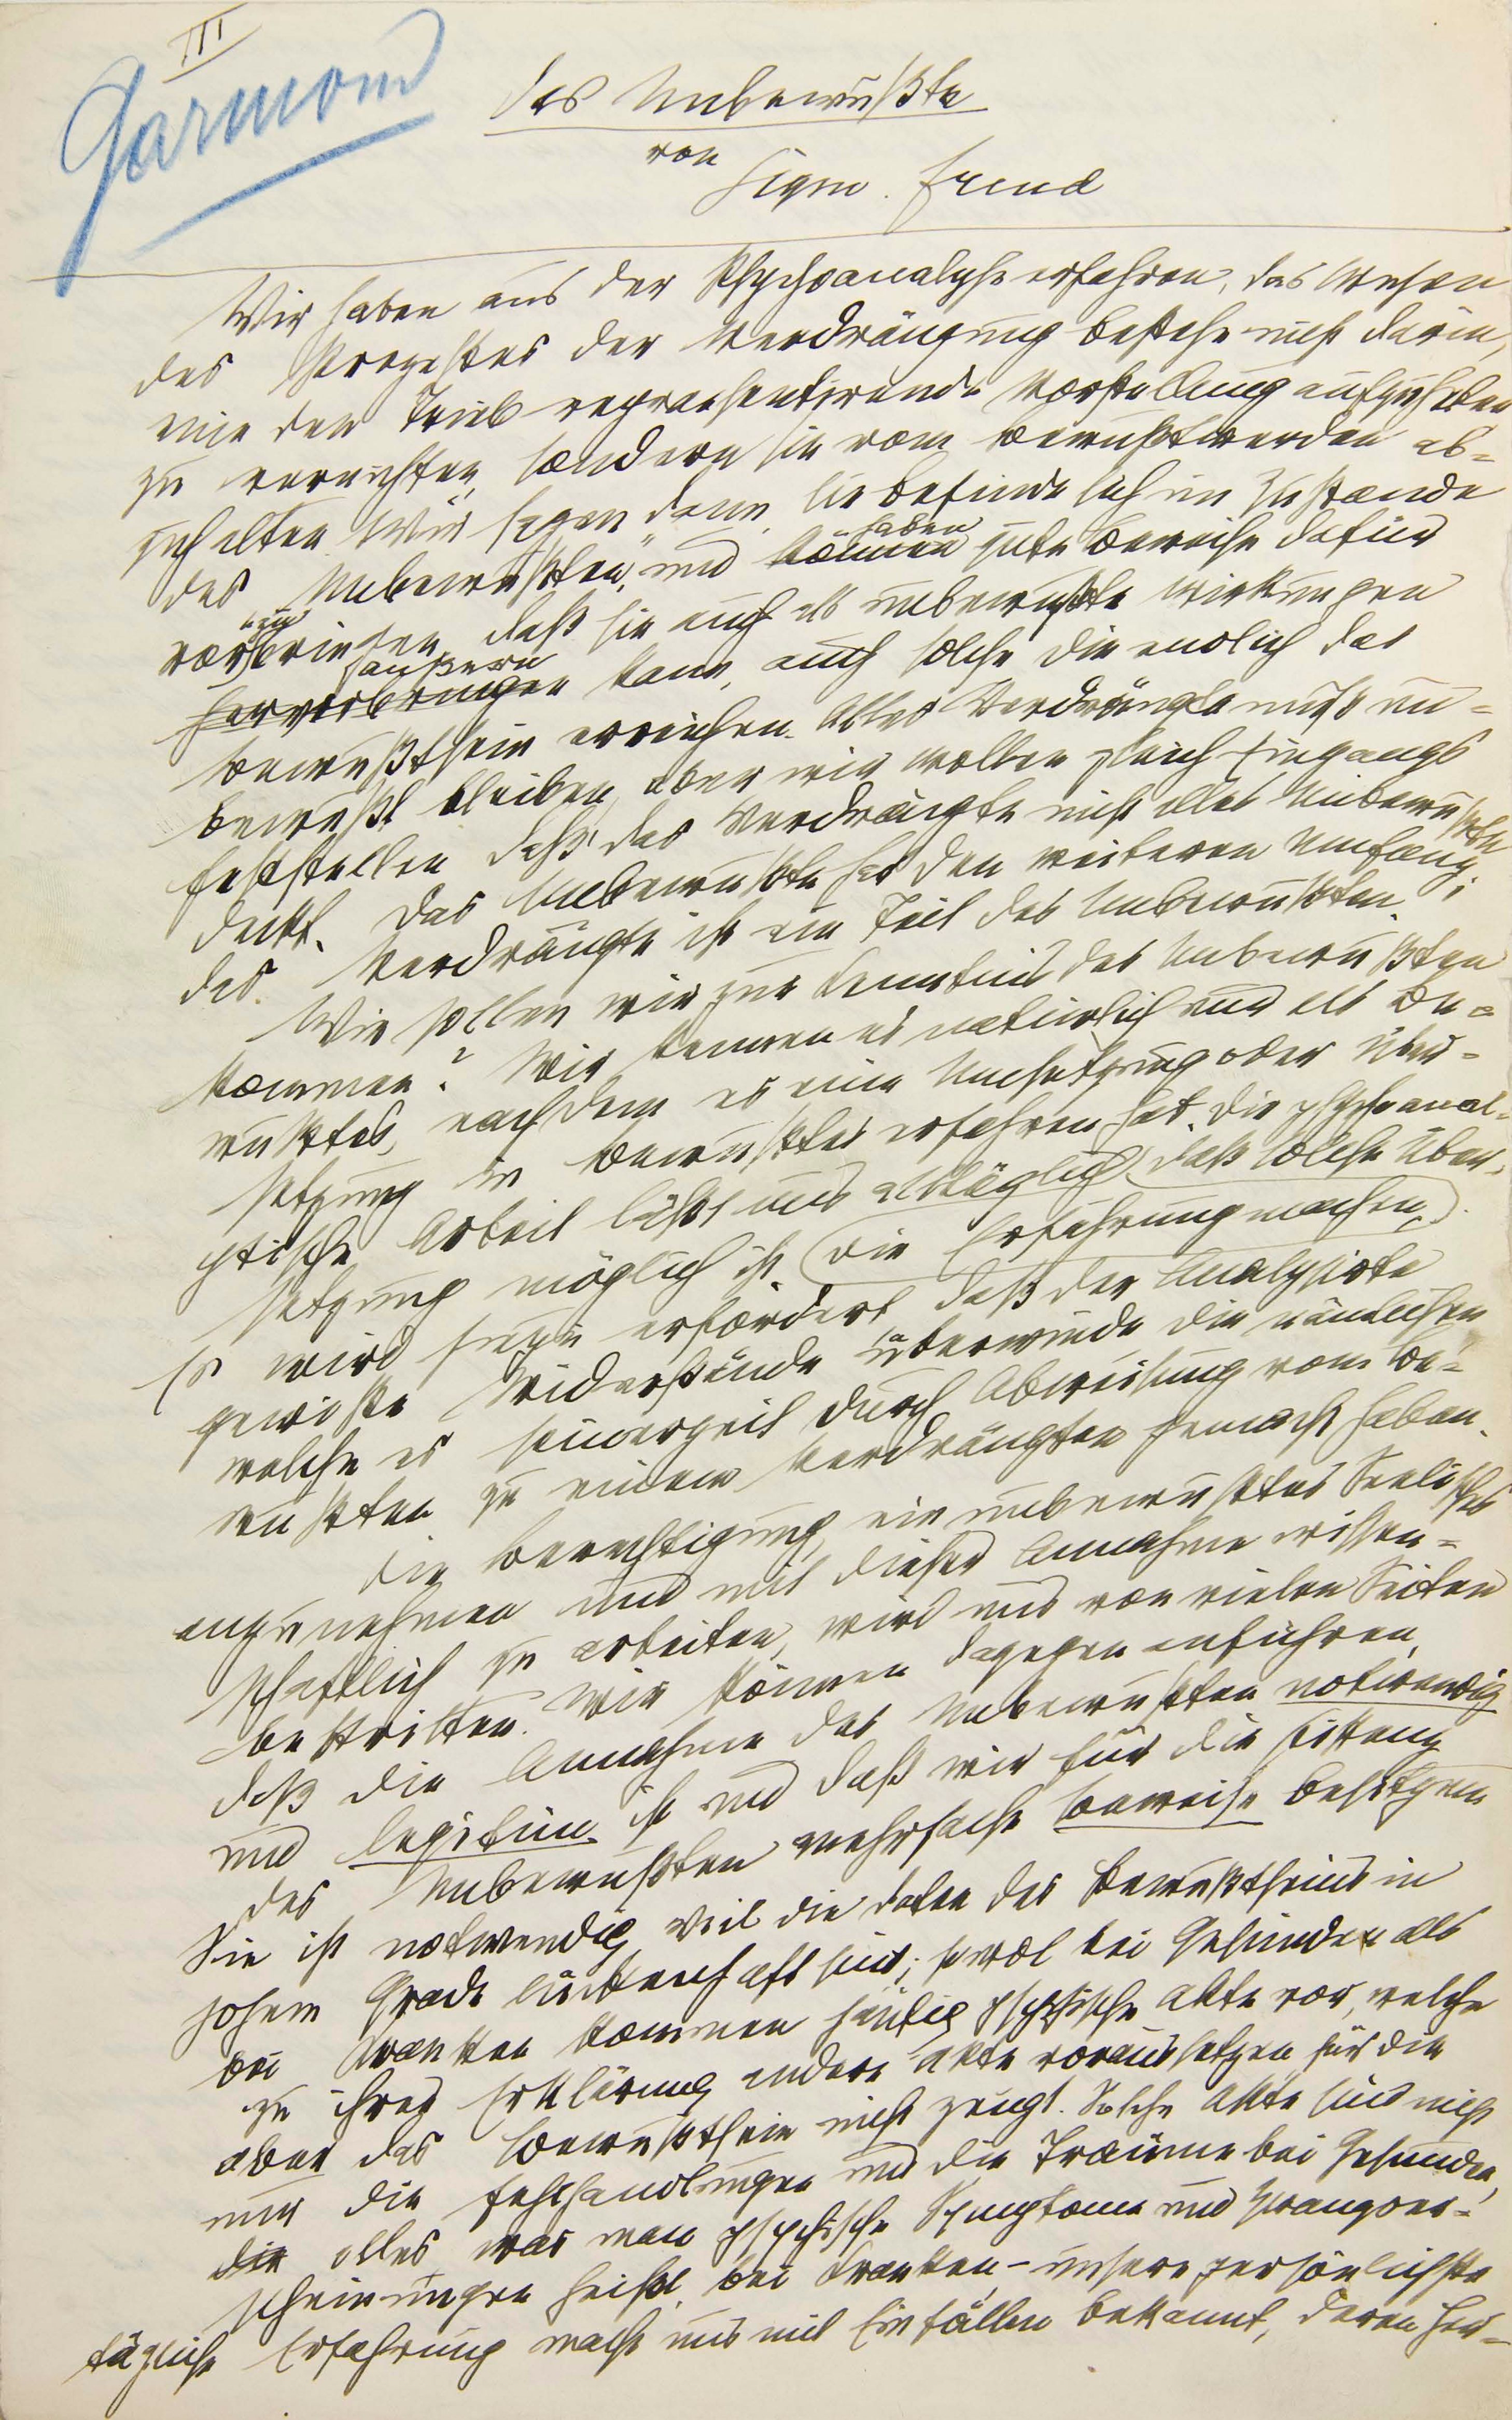 III
Garmond
Das Unbewußte
von
Sigm. Freud
Wir haben aus der Psychoanalyse erfahren, das Wesen
des Prozeßes der Verdrängung bestehe nicht darin,
eine den Trieb repraesentirende Vorstellung aufzuheben
zu vernichten, sondern sie vom Bewußtwerden ab=
zuhalten. Wir sagen dann, sie befinde sich im Zustande
des „Unbewußten“, und können haben gute Beweise dafür
vorzubringen, daß sie auch als unbewußte Wirkungen
hervorbringen äußern kann, auch solche die endlich das
Bewußtsein erreichen. Alles Verdrängte muß un=
bewußt bleiben, aber wir wollen gleich Eingangs
feststellen daß das Verdrängte nicht alles Unbewußte
deckt. Das Unbewußte hat den weiteren Umfang;
das Verdrängte ist ein Teil des Unbewußten.
Wie sollen wir zur Kenntnis des Unbewußten
kommen? Wir kennen es natürlich nur als Be=
wußtes, nachdem es eine Umsetzung oder Über=
setzung in Bewußtes erfahren hat. Die psychoanal=
ytische Arbeit läßt uns alltäglich daß solche Über=
setzung möglich ist. die Erfahrung machen,
Es wird hiezu erfordert daß der Analysirte
gewiße Widerstände überwinde die nämlichen
welche es seinerzeit durch Abweisung vom Be=
wußten zu einem Verdrängten gemacht haben.
Die Berechtigung, ein unbewußtes Seelisches
anzunehmen und mit dieser Annahme wissen=
schaftlich zu arbeiten, wird uns von vielen Seiten
bestritten. Wir können dagegen anführen,
daß die Annahme des Unbewußten notwendig
und legitim ist und daß wir für die Existenz
des Unbewußten mehrfache Beweise besitzen
Sie ist notwendig, weil die Daten des Bewußtseins in
hohem Grade lückenhaft sind; sowol bei Gesunden als
bei Kranken kommen häufig psychische Akte vor, welche
zu ihrer Erklärung andere Akte voraussetzen für die
aber das Bewußtsein nicht zeugt. Solche Akte sind nicht
nur die Fehlhandlungen und die Träume bei Gesunden,
die alles was man psychische Symptome und Zwangser=
scheinungen heißt, bei Kranken – unsere persönlichste
tägliche Erfahrung macht uns mit Einfällen bekannt, deren Her=